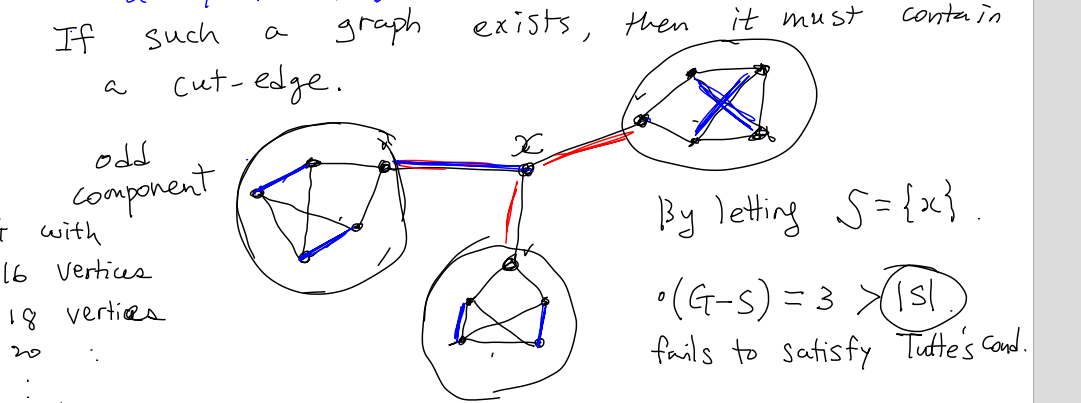 If such a graph exists, then it must contain
a cut-edge.
odd
component
with
16 vertices
18 vertices
20 :
:
x
By letting S = {x}.
o(G-S) = 3 > |S|.
fails to satisfy Tutte's Cond.